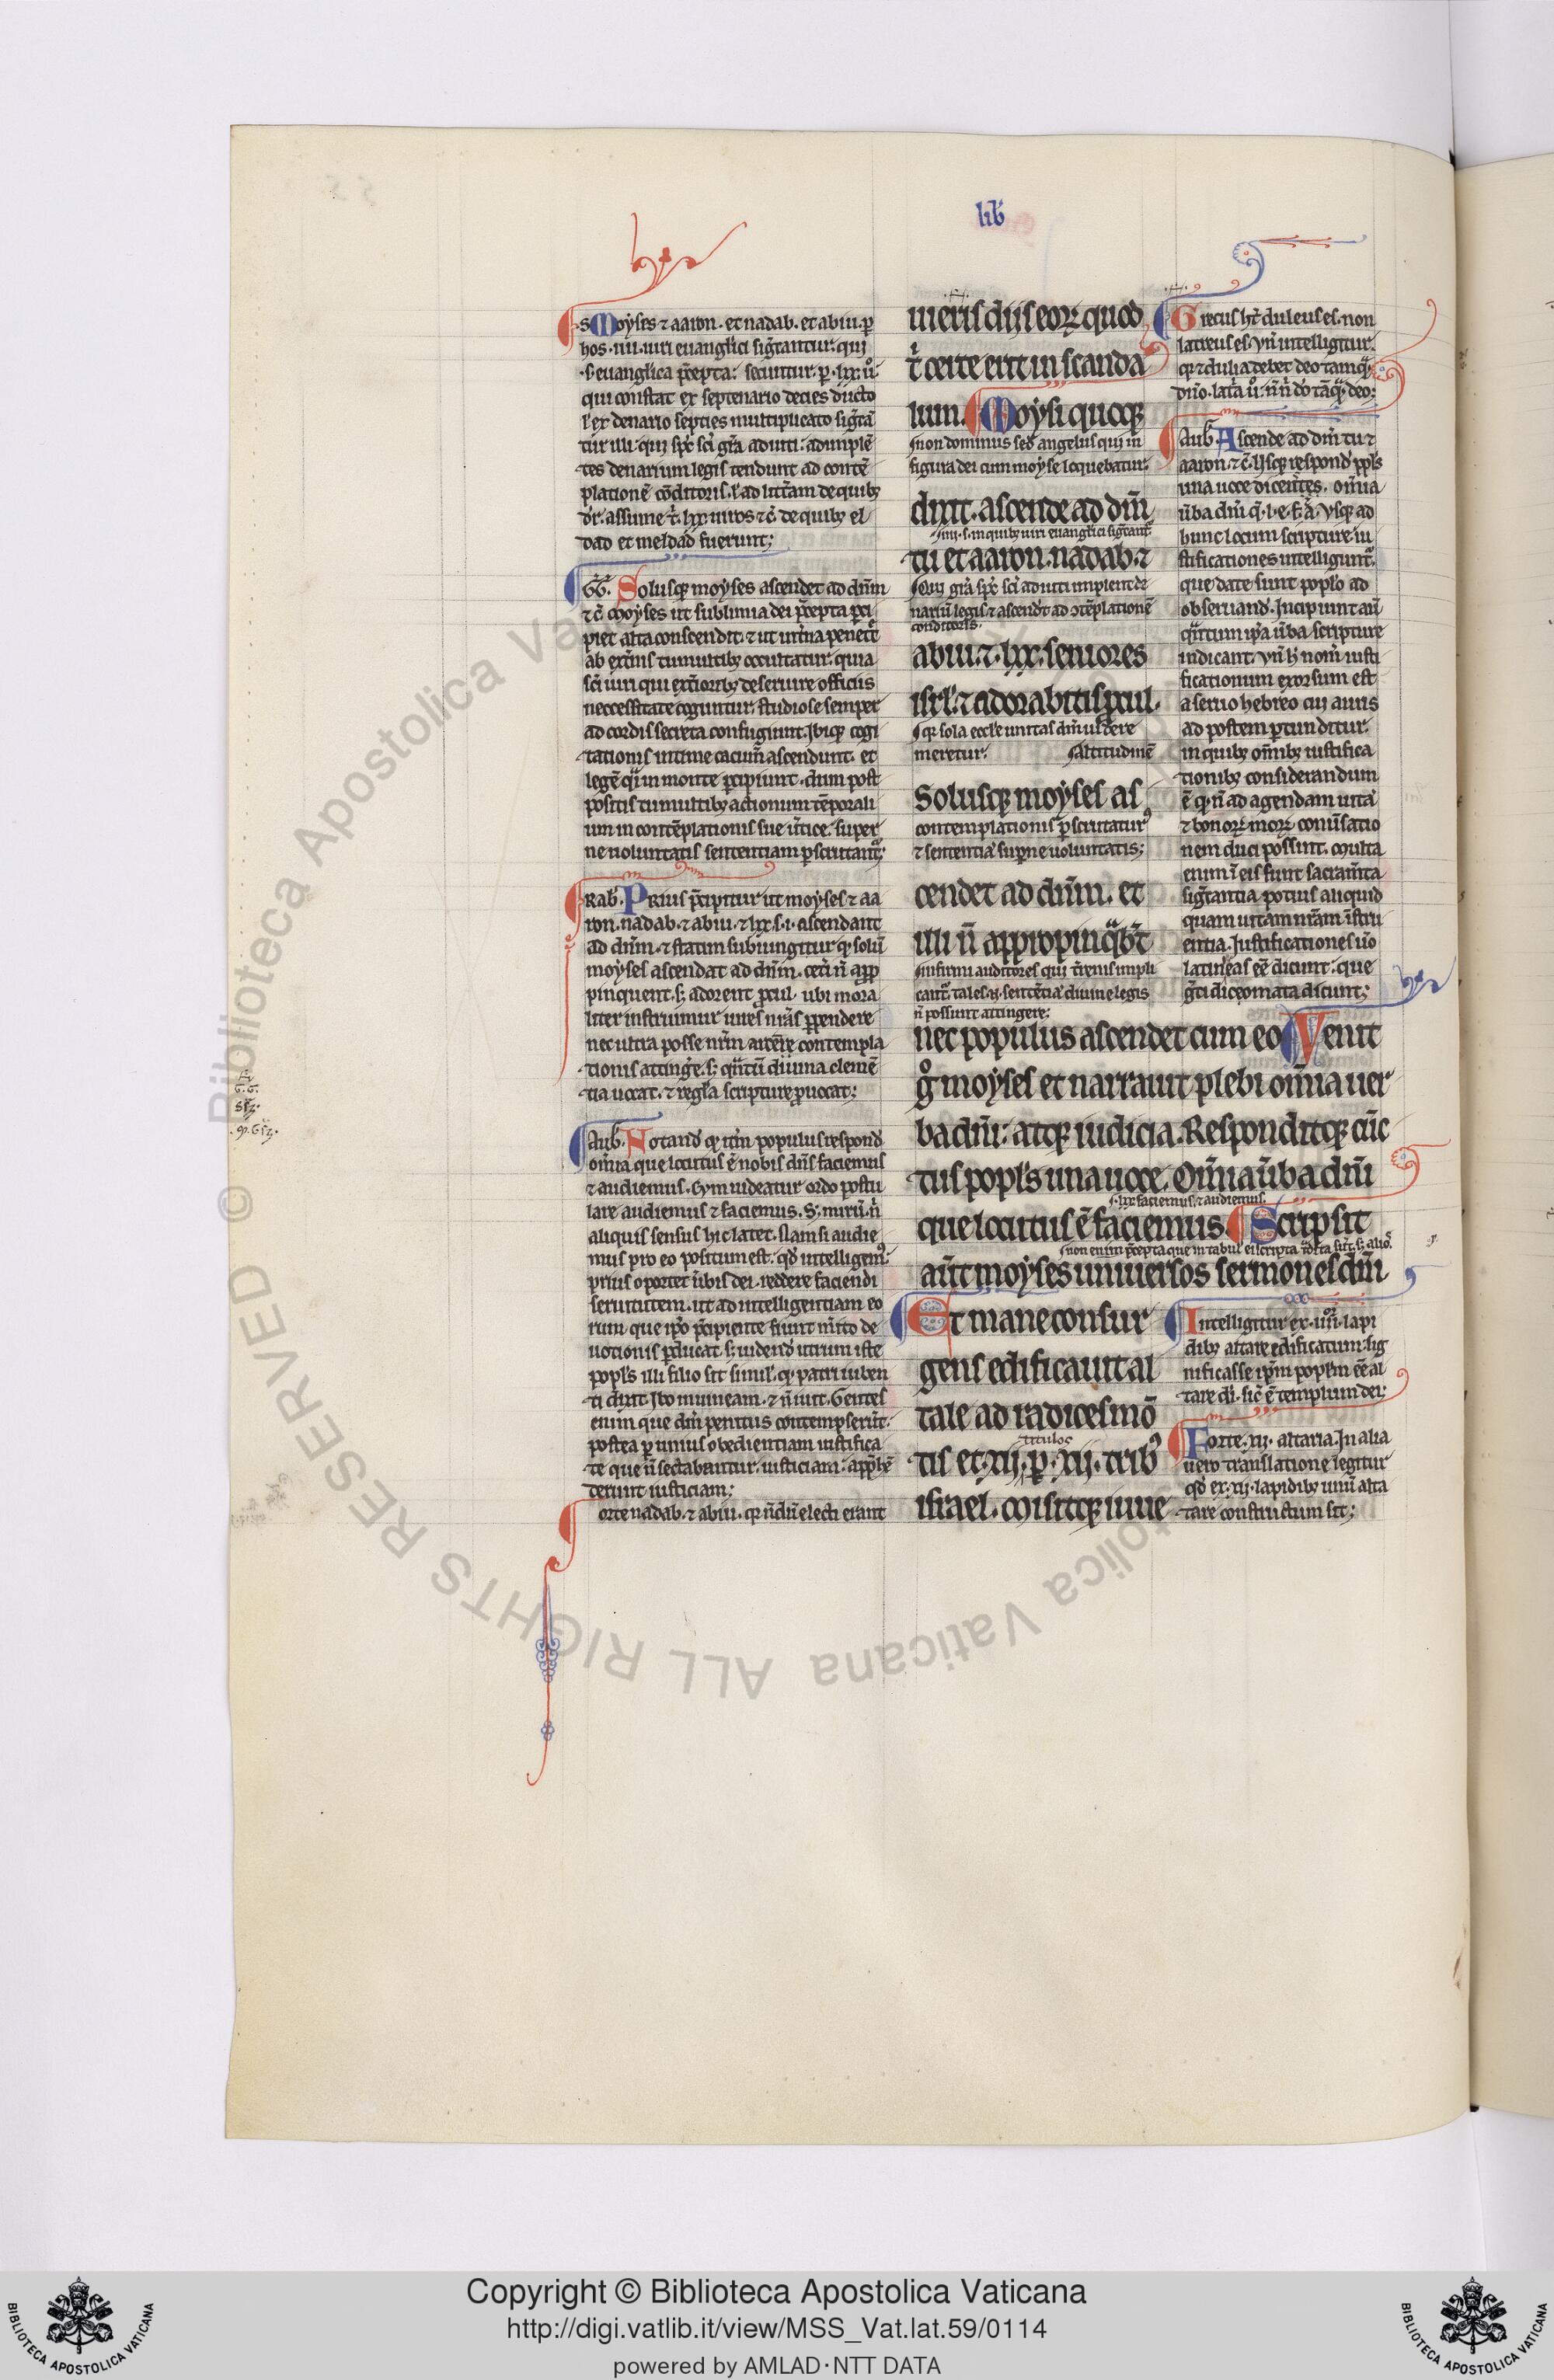 lib̃
·S· Moyses ⁊ aaron. et nadab. et abiu. ꝑ
hos .iiii. uiri euangl'ici sigñantur. qui
.s. euanglica p̃cepta: secuntur. ꝑ .lxx. ũ.
qui constat ex septenario decies ducto
ł ex denario septies multiplicato sigñã
tur illi qui sp̃c sc̃i gr̃a adiuti: adimplẽ
tes denarium legis tendunt ad contẽ
platione cõditoris. ł ad litt̃am de quibꝰ
dr̃. assume t̃. lxx. uiros ⁊c̃. de quibꝰ el
dad et meldad fuerunt;
GG. Solusqꝫ moyses ascendet ad dñm
⁊c̃. moyses ut sublimia dei p̃cepta ꝑci
piet alta conscendit. ⁊ ut int̃na penet̃
ab ext̃nis tumultibꝰ occultatur. quia
sc̃i uiri qui ext̃ioribꝰ deseruire officiis
neccessitate coguntur. studiose semper
ad cordis secreta confugiunt. Ibiqꝫ cogi
tationis intime cacum̃ ascendunt. et
legẽ q̃i in monte ꝑcipiunt. dum post
positis tumultibꝰ actionum tẽporali
um in contẽplationis sue ũtice. super
ne uoluntatis sententiam ꝑscrutant̃;
Rab. Prius p̃cipitur ut moyses ⁊ aa
ron. nadab. ⁊ abiu. ⁊ lxx. s. i. ascendant
ad dñm. ⁊ statim subiungitur qꝫ solũ
moyses ascendat ad dñm. cet̃i ñ app̃
pinquent. sꝫ adorent ꝓcul. ubi mora
liter instruimur uires nr̃as ꝑpendere
nec ultra posse nr̃m arcem contempla
tionis attinge. sꝫ q̃ntũ diuina clemẽ
tia uocat. ⁊ regl'a scripture ꝓuocat;
Aub̃. Notand' qꝫ it̃m populus respond'
om̃ia que locutus ẽ nobis dñs faciemus
⁊ audiemus. Cum uideatur ordo postu
lare audiemus ⁊ faciemus. Sꝫ mirũ. ñ
aliquis sensus hic latet. Nam si audie
mus pro eo positum est. qd̃ intelligemꝰ.
prius oportet ũbis dei. reddere faciendi
seruitutem. ut ad intelligentiam eo
rum que ip̃o p̃cipiente fiunt m̃ito de
uotionis ꝑducat. sꝫ uidend' utrum iste
popl's illi filio sit simil'. qꝫ patri iuben
ti dixit. Ibo in uineam. ⁊ ñ iuit. Gentes
enim que dñm penitus contempserũt.
postea ꝑ unius obedientiam iustifica
te que ñ sectabantur. iusticiam: app̃hẽ
derunt iusticiam;
orte nadab. ⁊ abiu. qꝫ ñdũ electi erant
uieris diis eoꝝ. quod
t̃ certe erit in scanda
lum. Moysi quoqꝫ
non dominus sed angelus qui in
figura dei cum moyse loquebatur.
dixit. ascende ad dñm
.iiii. s. in quibꝰ uiri euanglici sigñant̃.
tu et aaron. nadab. ⁊
Qui gr̃a sp̃c sc̃i adiuti implent de
nariũ legis ⁊ ascend't ad ɔtẽplationẽ
conditoris.
abiu. ⁊ .lxx. seniores
isrl'. ⁊ adorabitis ꝓcul.
qꝫ sola eccl'e unitas dñm uidere
meretur. altitudinẽ
Solusqꝫ moyses as
contemplationis ꝑscrutaturꝰ
⁊ sententiã sup̃ne uoluntatis;
cendet ad dñm. et
illi ñ appropinq̃bt̃
infirmi auditores qui t̃renis impli
cant̃. tales .n. sentẽciã diuine legis
ñ possunt attingere;
nec populus ascendet cum eo Venit
g̊ moyses et narrauit plebi om̃ia uer
ba dñi: atqꝫ iudicia. Responditqꝫ cũc
tus popl's una uoce. Om̃ia ũba dñi
.lxx. faciemus. ⁊ audiemus.
que locutus ẽ faciemus. Scripsit
non enim p̃cepta que in tabul' ei scripta
aũt moyses uniuersos sermones dñi
Et mane consur
gens edificauit al
tare ad radices mõ
titulos
tis et .xii. ꝑ .xii. tribꝰ
israel. Misitqꝫ iuue
Grecus ht̃ duleus es. non
latreus es. vñ intelligitur.
qꝫ ⁊ dulia debet deo tamqͣ̃
dño. latria ũo. ñ ñ do tãqͣ̃ deo;
Aub̃. Ascende ad dñm tu ⁊
aaron. ⁊c̃. usqꝫ respond' ppl's
una uoce dicentes. om̃ia
ũba dñi q̃. l. e. f. ⁊ a. vsqꝫ ad
hunc locum scripture. iu
stificationes intelligunt̃.
que date sunt popl'o ad
obseruand'. Incipiunt aũ
q̃ntum ip̃a ũba scripture
indicant. vñ h̃ nom̃ iusti
ficationum exorsum est
a seruo hebreo cui auris
ad postem ꝑtunditur.
in quibꝰ om̃ibꝰ iustifica
tionibꝰ considerandum
ẽ qꝫ ñ ad agendam uitã
⁊ bonoꝝ moꝝ conũsatio
nem duci possint. multa
enim ĩ eis sunt sacram̃ta
sigñantia potius aliquid
quam uitam nr̃am ĩstru
entia. Iustificationes ũo
latini eas eẽ dicunt: que
g̃ci diceomata dicunt;
Intelligitur ex .xii. lapi
dibꝰ altare edificatum: sig
nificasse ip̃m popl'm eẽ al
tare di'. sic ẽ templum dei;
Forte .xii. altaria. In alia
uero translatione legitur
qd̃ ex .xii. lapidibꝰ unũ alta
tare constructum sit;
Copyright © Biblioteca Apostolica Vaticana
http://digi.vatlib.it/view/MSS_Vat.lat.59/0114
powered by AMLAD·NTT DATA
BIBLIOTECA APOSTOLICA VATICANA
BIBLIOTECA APOSTOLICA VATICANA
© Biblioteca Apostolica Vaticana ALL RIGHTS RESERVED